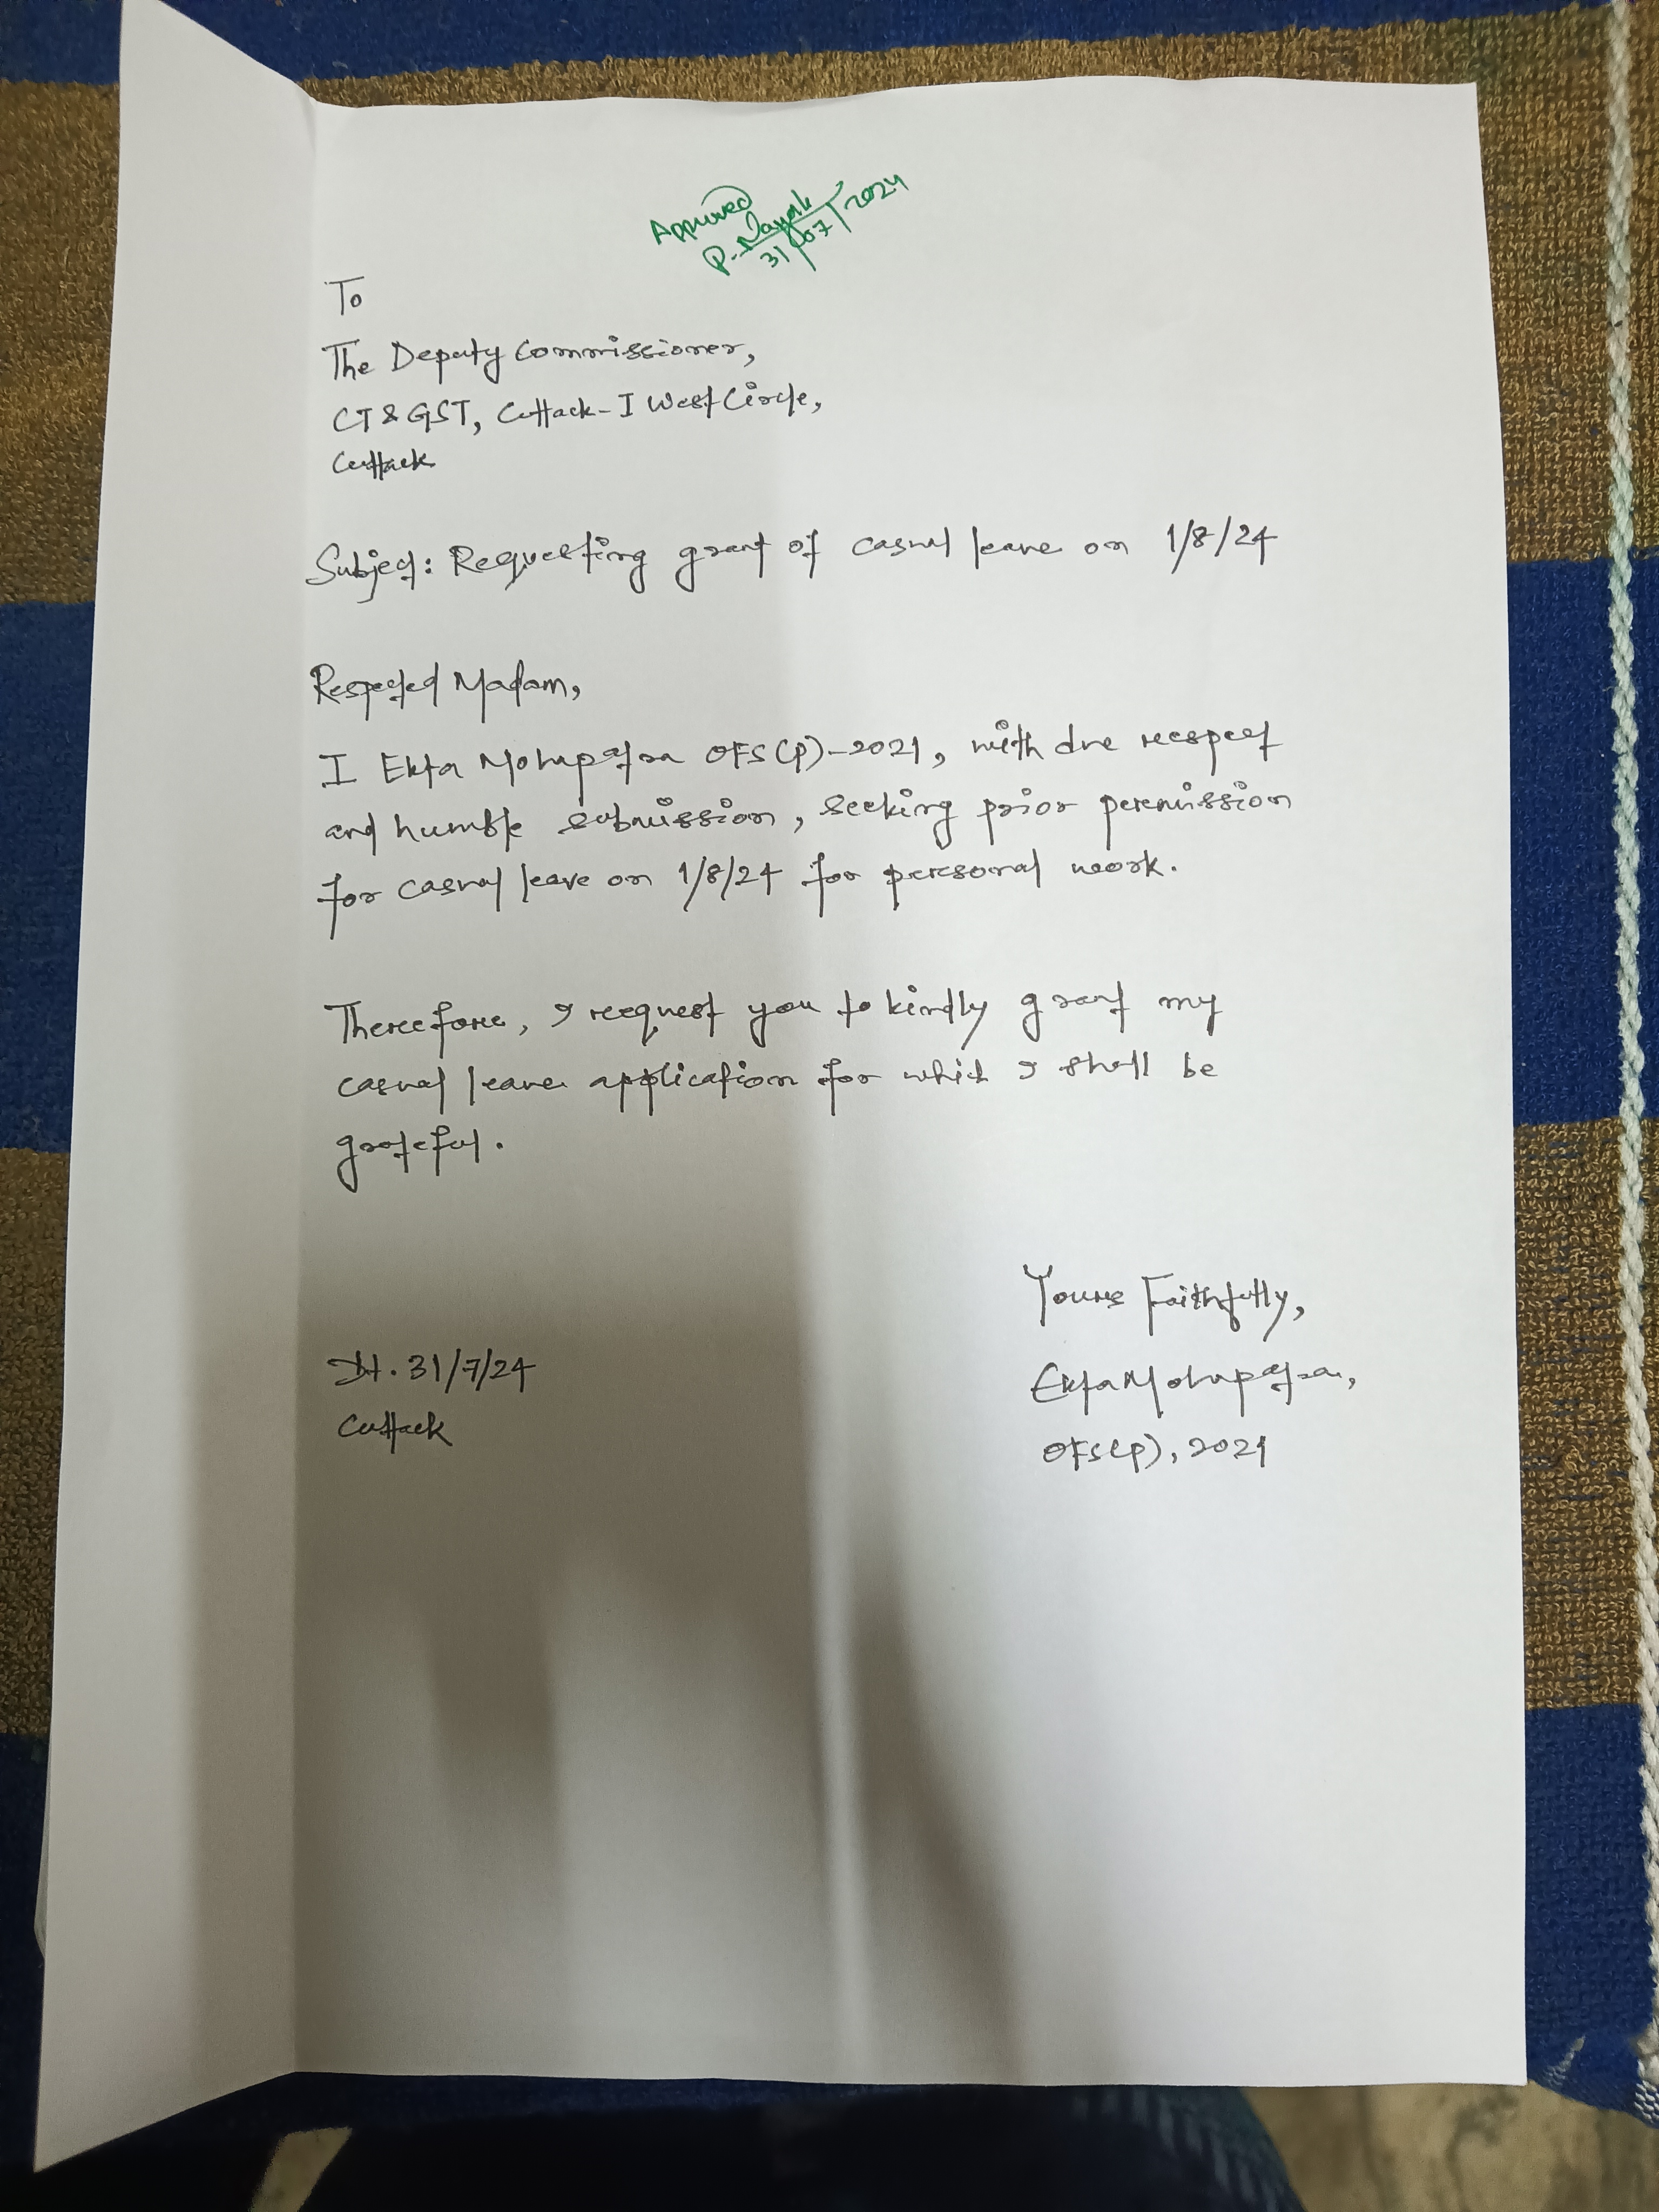 Approved
P. Nayak
31/07/2024
To
The Deputy Commissioner,
CT & GST, Cuttack-I West Circle,
Cuttack
Subject: Requesting grant of casual leave on 1/8/24
Respected Madam,
I Ekta Mohapatra OFS(P)-2021, with due respect
and humble submission, seeking prior permission
for casual leave on 1/8/24 for personal work.
Therefore, I request you to kindly grant my
casual leave application for which I shall be
grateful.
Yours Faithfully,
Ekta Mohapatra,
OFS(P), 2021
Dt. 31/7/24
Cuttack